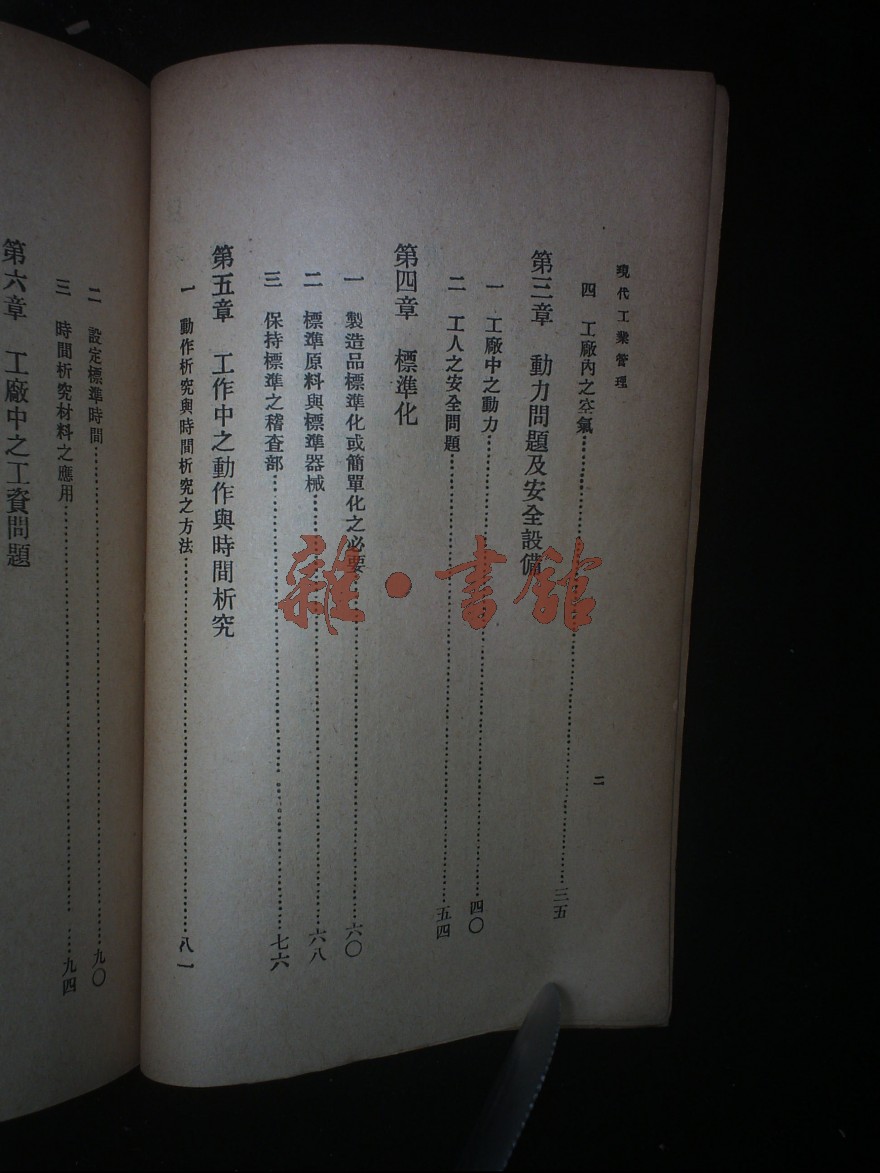 現代工業管理
四　工廠內之空氣……三五
第三章　動力問題及安全設備
一　工廠中之動力……四〇
二　工人之安全問題……五四
第四章　標準化
一　製造品標準化或簡單化之必要……六〇
二　標準原料與標準器械……六八
三　保持標準之稽查部……七六
第五章　工作中之動作與時間析究
一　動作析究與時間析究之方法……八一
二
二　設定標準時間……九〇
三　時間析究材料之應用……九四
第六章　工廠中之工資問題
雜·書館